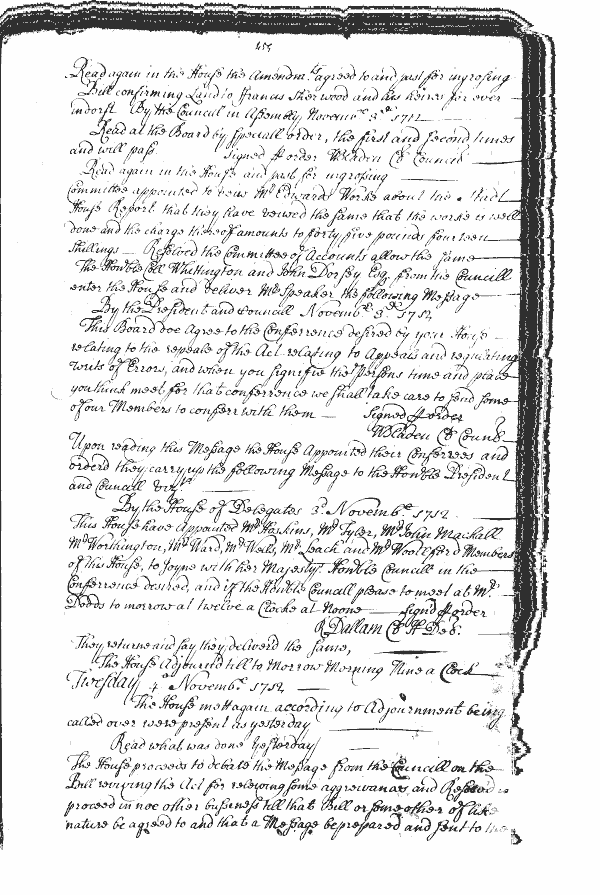 455
Read again in the House the Amendmts agreed to and past for ingrosing
Bill confirming Land to Francis Sherwood and his heires for ever
indorst By the Council in Assembly Novemr 3rd 1712
Read at the Board by speciall order, the first and second times
and will pass. Signed p order WBladen Cl Council
Read again in the House and past for ingrosing
Committee appointed to view Mr Edwards Worke about the
House Report that they have viewed the same that the worke is well
done and the charge thereof amounts to forty five pounds fourteen
shillings Resolved the Committee of Accounts allow the same
The Honble Coll Whitington and John Dorsey Esq. from the Councill
enter the House and deliver Mr Speaker the following Message
By the President and Councill Novembr 3d 1712
This Board doe Agree to the Conferrence desired by your House
relating to the repeale of the Act relating to Appeals and reguating
writs of Errors, and when you signifie the persons time and place
you think meet for that conferrence we shall take care to send some
of our Members to conferr with them Signed p order
WBladen Cl Counl
Upon reading this Message the House Appointed their Conferrees and
orderd they carry up the following Message to the Honble President
and Council vizt
By the House of Delegates 3d Novembr 1712
This House have Appointed Mr Haskins, Mr Tyler, Mr John Mackall
Mr Worthington, Mr Ward, Mr Wells, Mr Leach and Mr Woolford Members
of this House, to Joyne with her Majestys Honble Councill in the
Conferrence desired, and if the Honble Councall please to meet at Mr
Dodds to morrow at twelve a Clocke at Noone Signd p order
R Dallam Cl H Del:
They returne and say they deliverd the same,
The House Adjournd till to Morrow Morning Nine a Clock
Tuesday 4th Novembr 1712
The House mett again according to Adjournment being
called over were present as yesterday
Read what was done yesterday
The House proceeds to debate the Message from the Councill on the
Bill reviving the Act for releiving some aggreivances and Resolvd to
proceed in noe other business till that Bill or some other of like
nature be agreed to and that a Message be prepared and sent to the